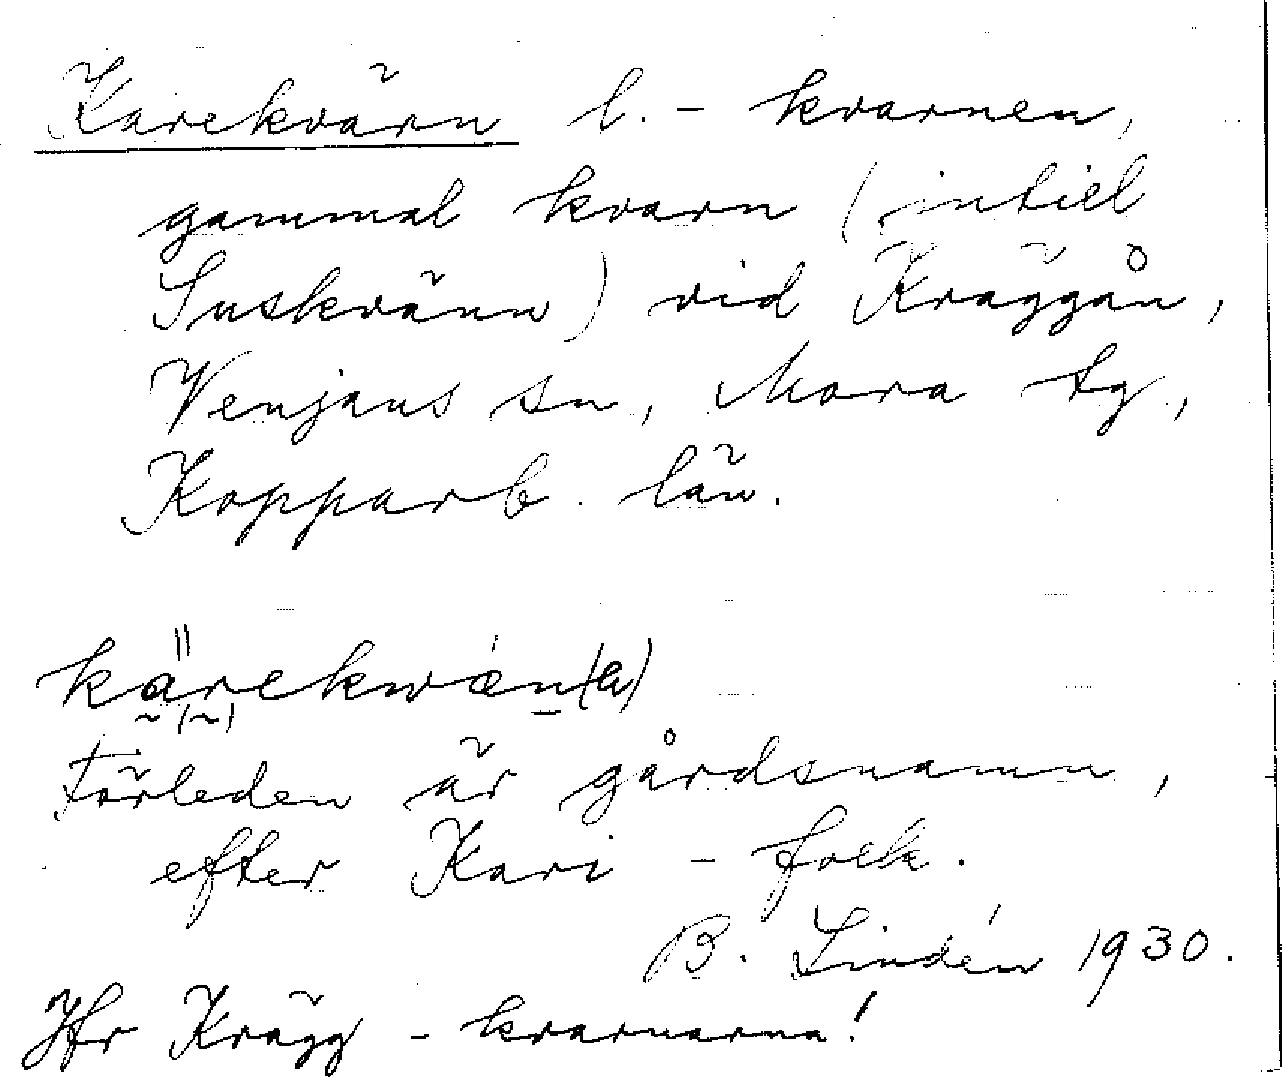 Karekvärn l. - kvarnen,
gammal kvarn (intill
Suskvänn) vid Kräggån,
Venjans sn, Mora tg.,
Kopparb. län.
kärekwæn(a)
Förleden är gårdsnamn,
efter Kari - folk.
B. Lindén 1930.
Jfr Krägg - kvarnarna!